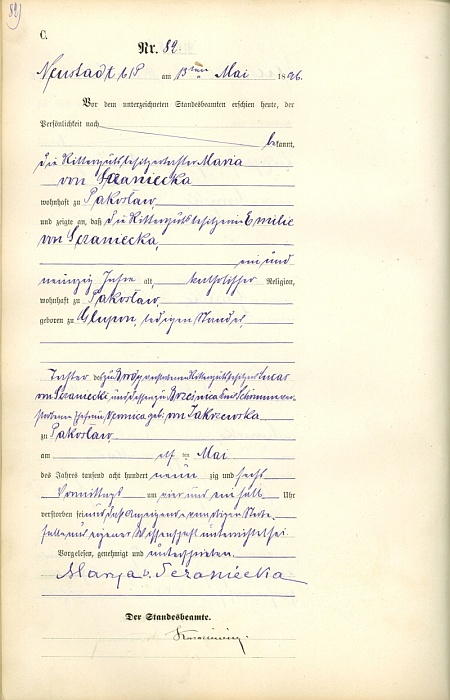 82)
C.
Nr. 82.
Neustadt b/P am 13ten Mai 1896.
Vor dem unterzeichneten Standesbeamten erschien heute, der
Persönlichkeit nach
bekannt,
die Rittergutsbesitzertochter Maria
von Sczaniecka
wohnhaft zu Pakosław,
und zeigte an, daß die Rittergutsbesitzerin Emilie
von Sczaniecka,
ein und
neunzig Jahre alt, katholischer Religion,
wohnhaft zu Pakosław,
geboren zu Głupon, ledigen Standes,
Tochter des zu verstorbenen Rittergutsbesitzers Lucas
von Sczaniecki und dessen zu Brzesnica ver-
storbenen Ehefrau Veronica geb. von Zakrzewska
zu Pakosław
am elf ten Mai
des Jahres tausend acht hundert neun zig und sechs
Vormittags um vier und ein halb Uhr
verstorben sei und daß Anzeigende von diesem Sterbe-
falle aus eigener Wissenschaft unterrichtet sei.
Vorgelesen, genehmigt und unterschrieben.
Marya v. Sczaniecka
Der Standesbeamte.